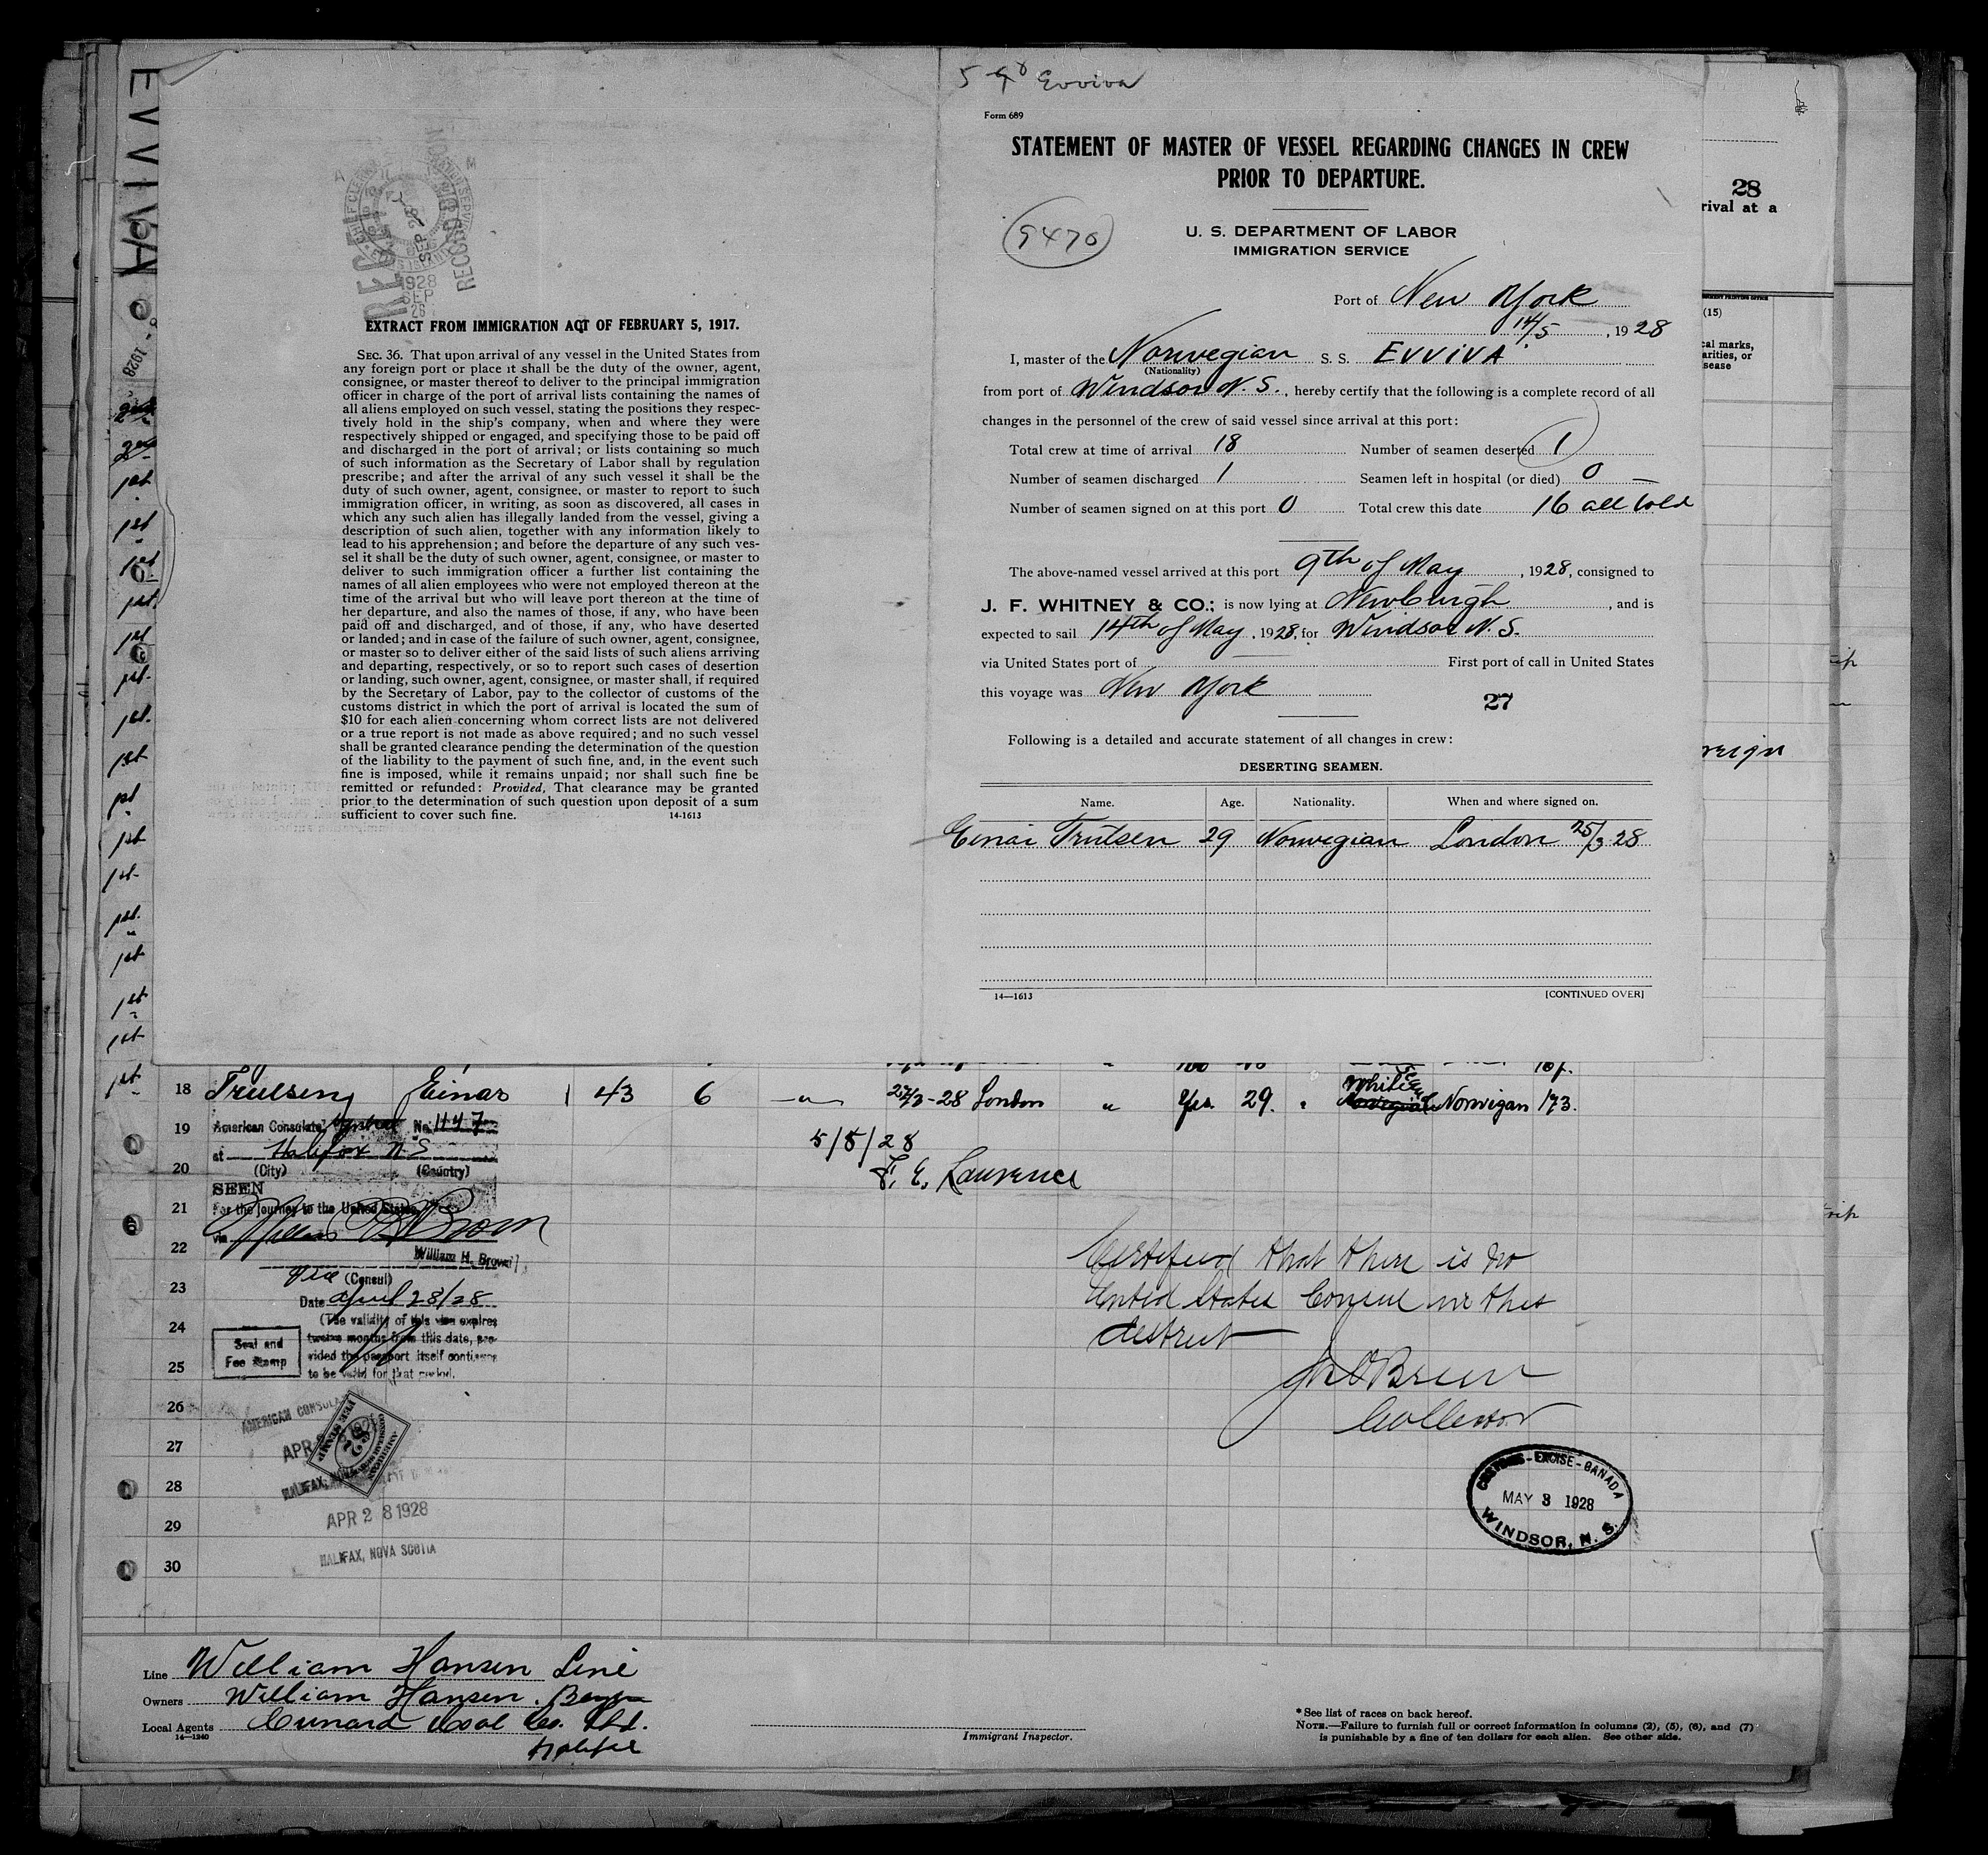 EVVIVA
5 Evviva
Form 689
STATEMENT OF MASTER OF VESSEL REGARDING CHANGES IN CREW
PRIOR TO DEPARTURE.
9470
U. S. DEPARTMENT OF LABOR
IMMIGRATION SERVICE
Port of New York
14/5, 1928
I, master of the Norwegian S. S. EVVIVA
(Nationality)
from port of Windsor N. S., hereby certify that the following is a complete record of all
changes in the personnel of the crew of said vessel since arrival at this port:
Total crew at time of arrival 18 Number of seamen deserted 1
Number of seamen discharged 1 Seamen left in hospital (or died) 0
Number of seamen signed on at this port 0 Total crew this date 16 all told
The above-named vessel arrived at this port 9th of May, 1928, consigned to
J. F. WHITNEY & CO.; is now lying at Newburgh, and is
expected to sail 14th of May, 1928, for Windsor N. S.
via United States port of First port of call in United States
this voyage was New York
27
Following is a detailed and accurate statement of all changes in crew:
DESERTING SEAMEN.
Name. Age. Nationality. When and where signed on.
Einar Trulsen 29 Norwegian London 25/3 28
14—1613 [CONTINUED OVER]
1928
SEP
26
EXTRACT FROM IMMIGRATION ACT OF FEBRUARY 5, 1917.
SEC. 36. That upon arrival of any vessel in the United States from
any foreign port or place it shall be the duty of the owner, agent,
consignee, or master thereof to deliver to the principal immigration
officer in charge of the port of arrival lists containing the names of
all aliens employed on such vessel, stating the positions they respec-
tively hold in the ship's company, when and where they were
respectively shipped or engaged, and specifying those to be paid off
and discharged in the port of arrival; or lists containing so much
of such information as the Secretary of Labor shall by regulation
prescribe; and after the arrival of any such vessel it shall be the
duty of such owner, agent, consignee, or master to report to such
immigration officer, in writing, as soon as discovered, all cases in
which any such alien has illegally landed from the vessel, giving a
description of such alien, together with any information likely to
lead to his apprehension; and before the departure of any such ves-
sel it shall be the duty of such owner, agent, consignee, or master to
deliver to such immigration officer a further list containing the
names of all alien employees who were not employed thereon at the
time of the arrival but who will leave port thereon at the time of
her departure, and also the names of those, if any, who have been
paid off and discharged, and of those, if any, who have deserted
or landed; and in case of the failure of such owner, agent, consignee,
or master so to deliver either of the said lists of such aliens arriving
and departing, respectively, or so to report such cases of desertion
or landing, such owner, agent, consignee, or master shall, if required
by the Secretary of Labor, pay to the collector of customs of the
customs district in which the port of arrival is located the sum of
$10 for each alien concerning whom correct lists are not delivered
or a true report is not made as above required; and no such vessel
shall be granted clearance pending the determination of the question
of the liability to the payment of such fine, and, in the event such
fine is imposed, while it remains unpaid; nor shall such fine be
remitted or refunded: Provided, That clearance may be granted
prior to the determination of such question upon deposit of a sum
sufficient to cover such fine. 14-1613
28
rival at a
(15)
cal marks,
arities, or
sease
18 Trulsen Einar 1 43 6 —"— 27/3-28 London " Yes 29. " White Norwigan 173.
19
American Consulate No. 1147
at Halifax N S
20
(City) (Country)
5/5/28
F. E. Lawrence
SEEN
21
For the journey to the United States
via
22
William H. Brown
Vice (Consul)
23
Date April 28/28
(The validity of this visa expires
24
twelve months from this date, pro-
vided the passport itself continues
25
to be valid for that period.
Seal and
Fee Stamp
26
AMERICAN CONSULA
27
APR
28
APR 28 1928
29
HALIFAX, NOVA SCOTIA
30
Certified that there is no
United States Consul in this
district
Jn OBrien
Collector
CUSTOMS-EXCISE-CANADA
MAY 3 1928
WINDSOR, N. S.
Line William Hansen Line
Owners William Hansen. Bergen
Local Agents Cunard Coal Co. Ltd.
14—1240
Halifax
Immigrant Inspector.
* See list of races on back hereof.
NOTE.—Failure to furnish full or correct information in columns (2), (5), (6), and (7)
is punishable by a fine of ten dollars for each alien. See other side.